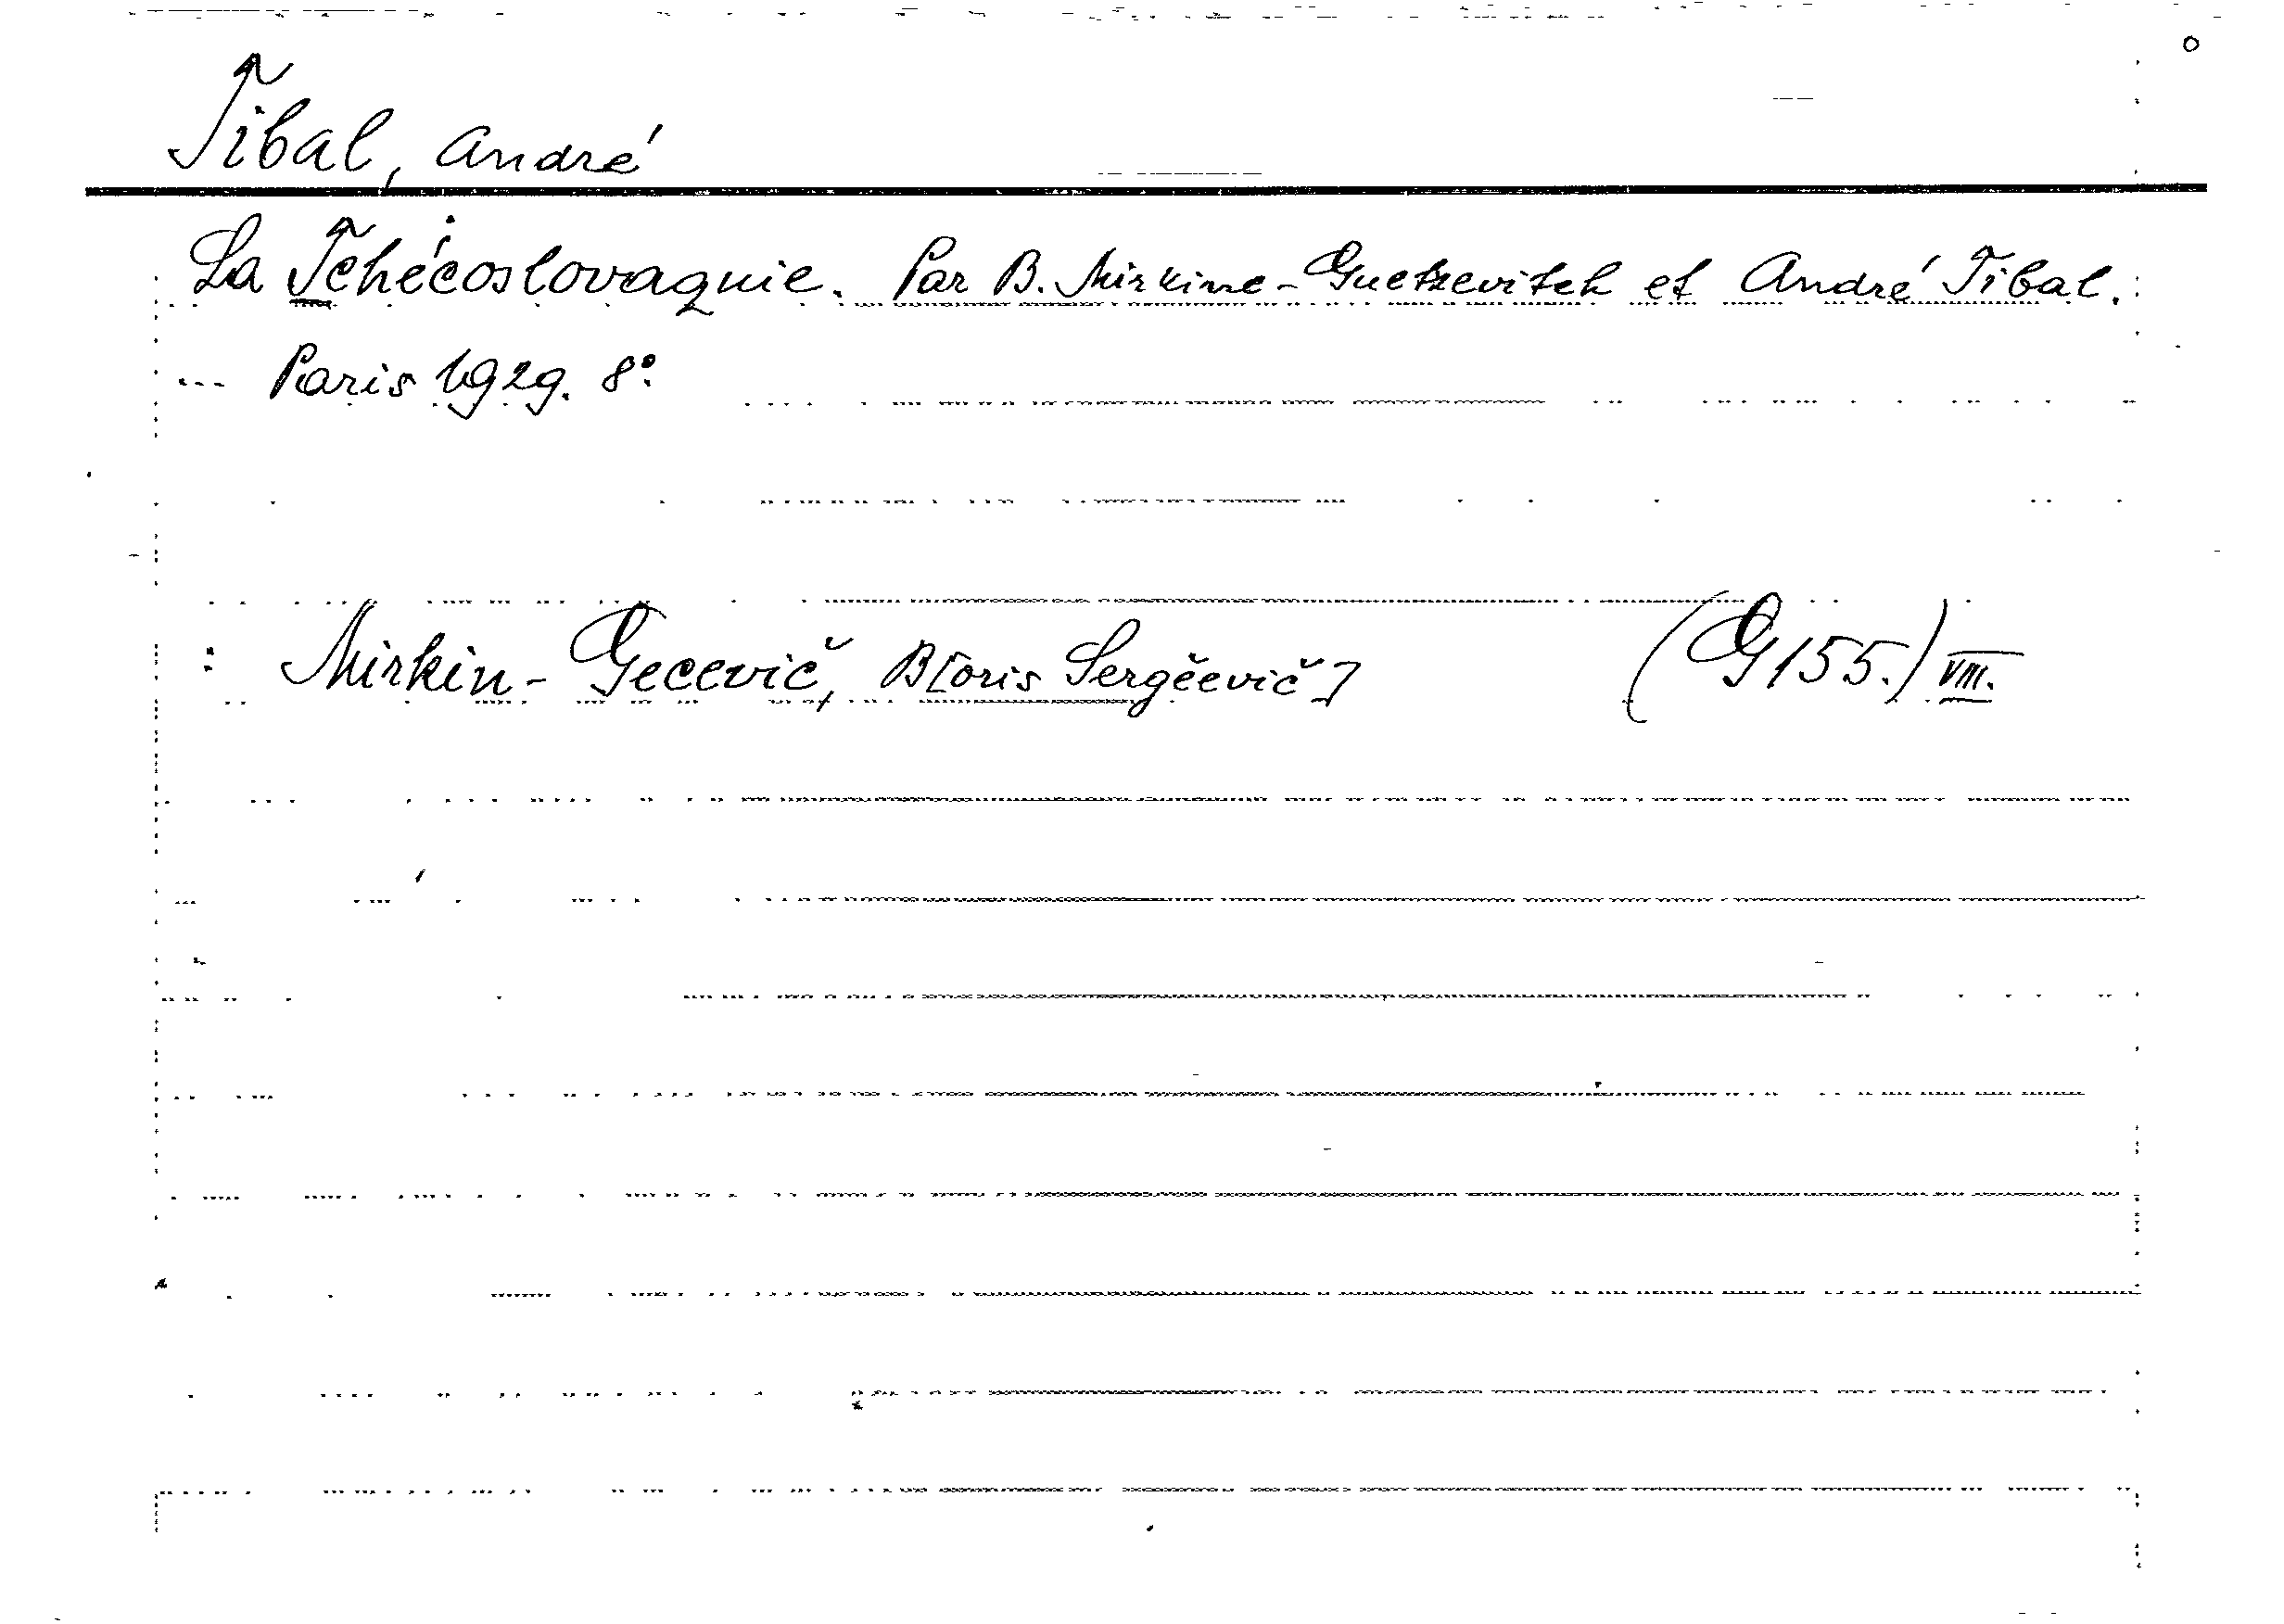 Tibal, André
La Tchécoslovaquie. Par B. Mirkine-Guetzevitch et André Tibal.
--- Paris 1929. 8°.
: Mirkin-Gecevič, B[oris Sergěevič] (G 155.) VIII.